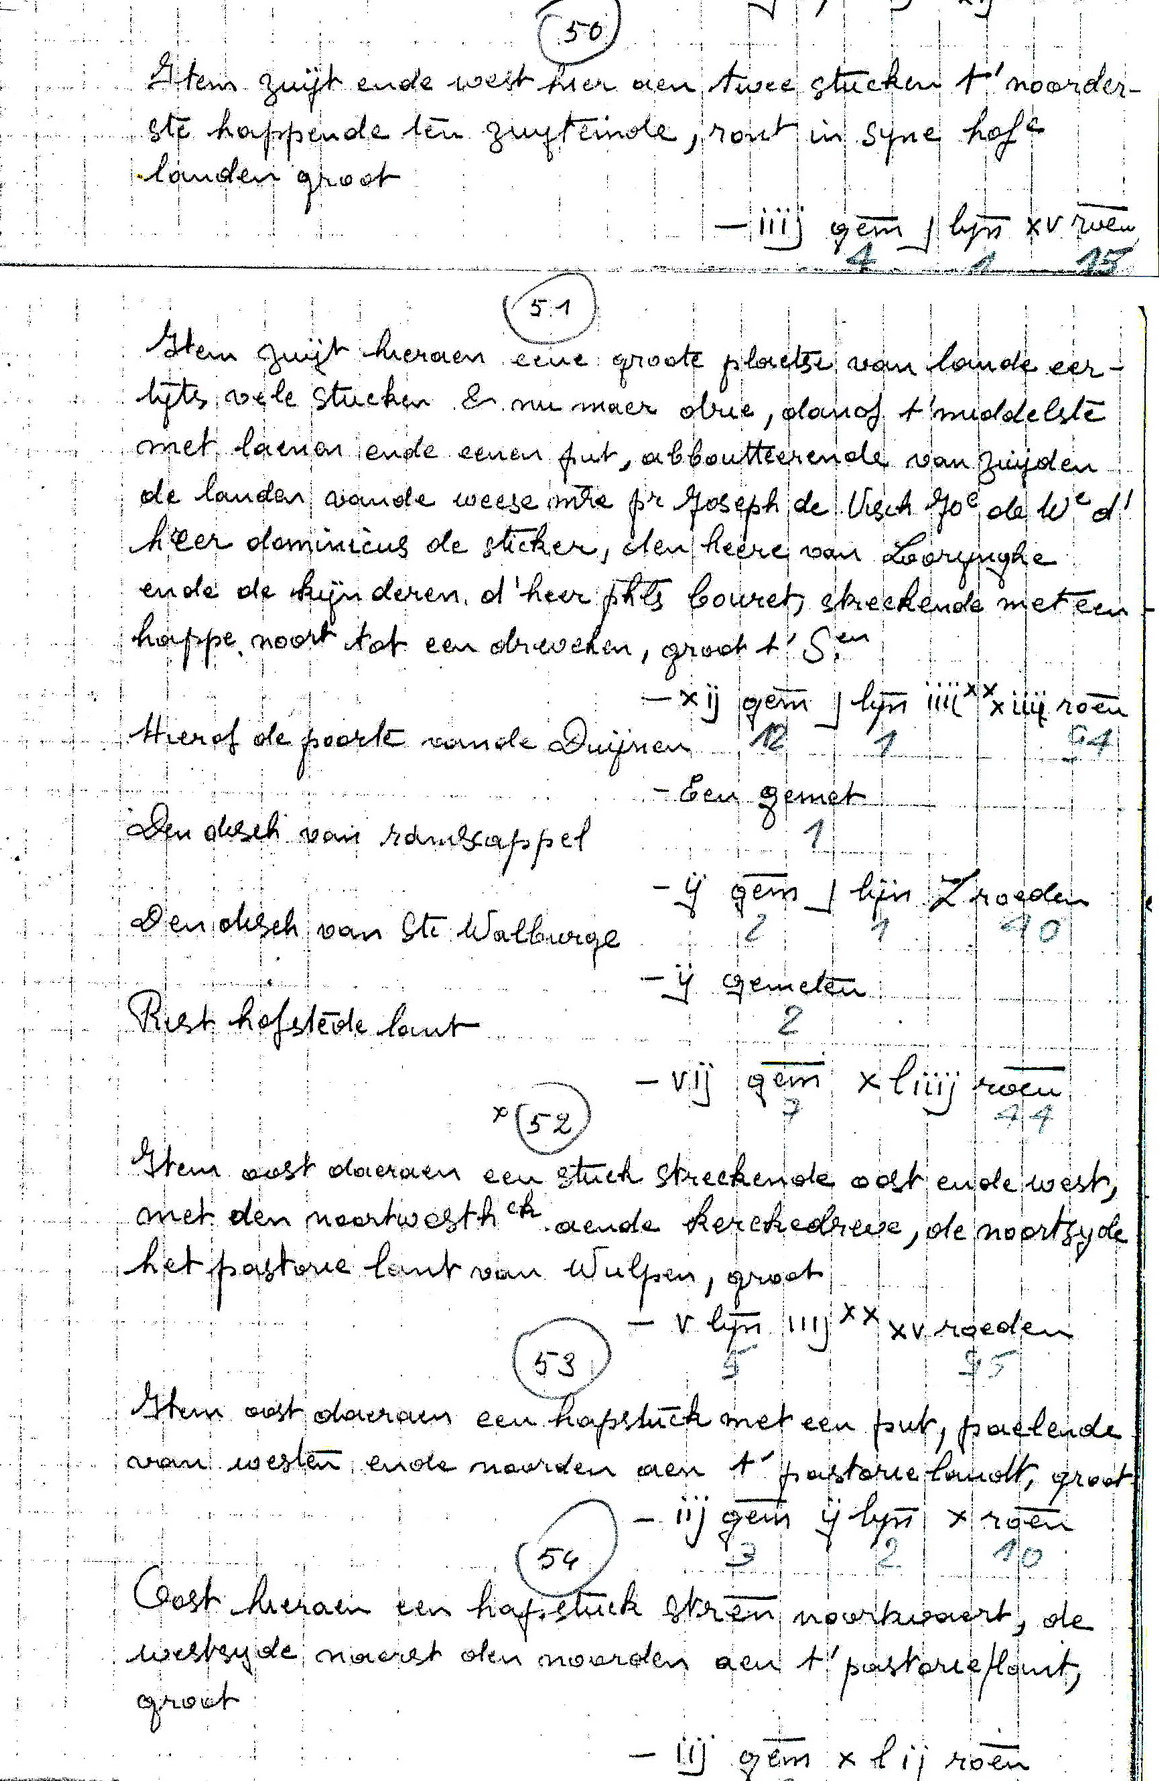 50
Item zuijt ende west hier aen twee stucken t' noorder-
ste happende ten zuyteinde, ront in syne hofe
landen groot
- iiij gem̄ j lyn̄ xv roēn
4 1 15
51
Item zuijt hieraen eene groote plaetse van lande eer-
tyts vele stucken & nu maer drie, danof t' middelste
met laenen ende eenen put, abboutteerende van zuijden
de landen vande weese mre pr Joseph de Visch Joe de We d'
heer dominicus de sticker, den heere van Loorynghe
ende de kynderen d'heer phls Couret, streckende met een
happe noort tot een dreveken, groot t' S.en
- xij gem̄ j lyn̄ iiijxx xiiij roēn
12 1 94
Hierof de poorte vande Duijnen
- Een gemet
1
Den disch van ramscappel
- ij gem̄ j lijn XL roeden
2 1 40
Den disch van Ste Walburge
- ij gemeten
2
Rest hofstede lant
- vij gem̄ xliiij roēn
7 44
x 52
Item oost daeraen een stuck streckende oost ende west,
met den noortwesth ck aende kerckedreve, de noortsyde
het pastorie lant van Wulpen, groot
- v lyn̄ iiijxx xv roeden
5 95
53
Item oost daeraen een hapstuck met een put, paelende
van westen ende noorden aen t' pastorie landt, groot
- iij gem̄ ij lyn̄ x roēn
3 2 10
54
Oost hieraen een hapstuck strēn noortwaert, de
westsyde naerst den noorden aen t' pastorie lant,
groot
- iij gem̄ xlij roēn